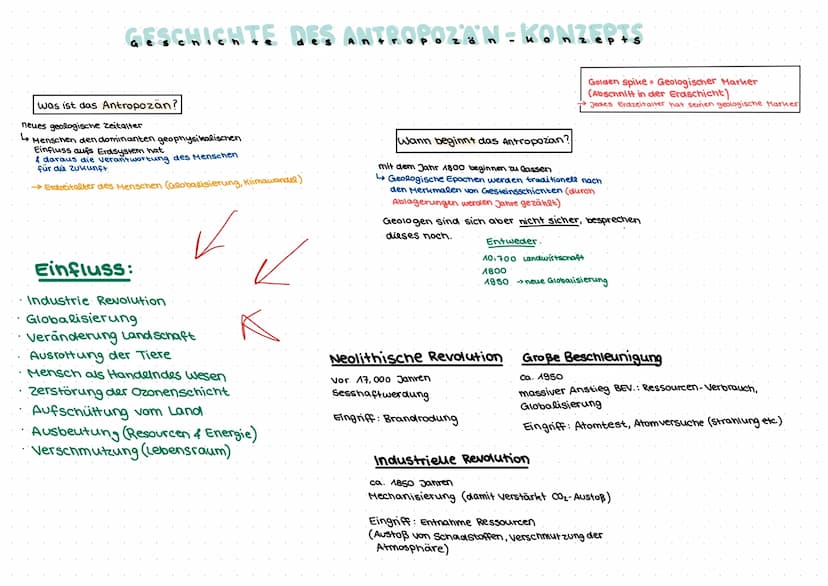 GESCHICHTE DES ANTROPOZÄN-KONZEPTS
Geschichte des Antropozän-Konzepts
Golden spike = Geologischer Marker
(Abschnitt in der Erdschicht)
→ Jedes Erdzeitalter hat seinen geologische Marker
Was ist das Antropozän?
neues geologische Zeitalter
↳ Menschen den dominanten geophysikalischen
Einfluss aufs Erdsystem hat
& daraus die Verantwortung des Menschen
für die Zukunft
→ Erdzeitalter des Menschen (Globalisierung, Klimawandel)
Wann beginnt das Antropozän?
mit dem Jahr 1800 beginnen zu lassen
↳ Geologische Epochen werden traditionell nach
den Merkmalen von Gesteinsschichten (durch
Ablagerungen werden Jahre gezählt)
Geologen sind sich aber nicht sicher, besprechen
dieses noch.
Entweder:
10.700 Landwirtschaft
1800
1950 → neue Globalisierung
Einfluss:
· Industrie Revolution
· Globalisierung
· Veränderung Landschaft
· Ausrottung der Tiere
· Mensch als Handelndes Wesen
· Zerstörung der Ozonenschicht
· Aufschüttung vom Land
· Ausbeutung (Resourcen & Energie)
· Verschmutzung (Lebensraum)
Neolithische Revolution
Vor 17,000 Jahren
Sesshaftwerdung
Eingriff: Brandrodung
Große Beschleunigung
ca. 1950
massiver Anstieg BEV.: Ressourcen-Verbrauch,
Globalisierung
Eingriff: Atomtest, Atomversuche (Strahlung etc)
Industrielle Revolution
ca. 1850 Jahren
Mechanisierung (damit verstärkt CO₂-Austoß)
Eingriff: Entnahme Ressourcen
(Austoß von Schadstoffen, Verschmutzung der
Atmosphäre)